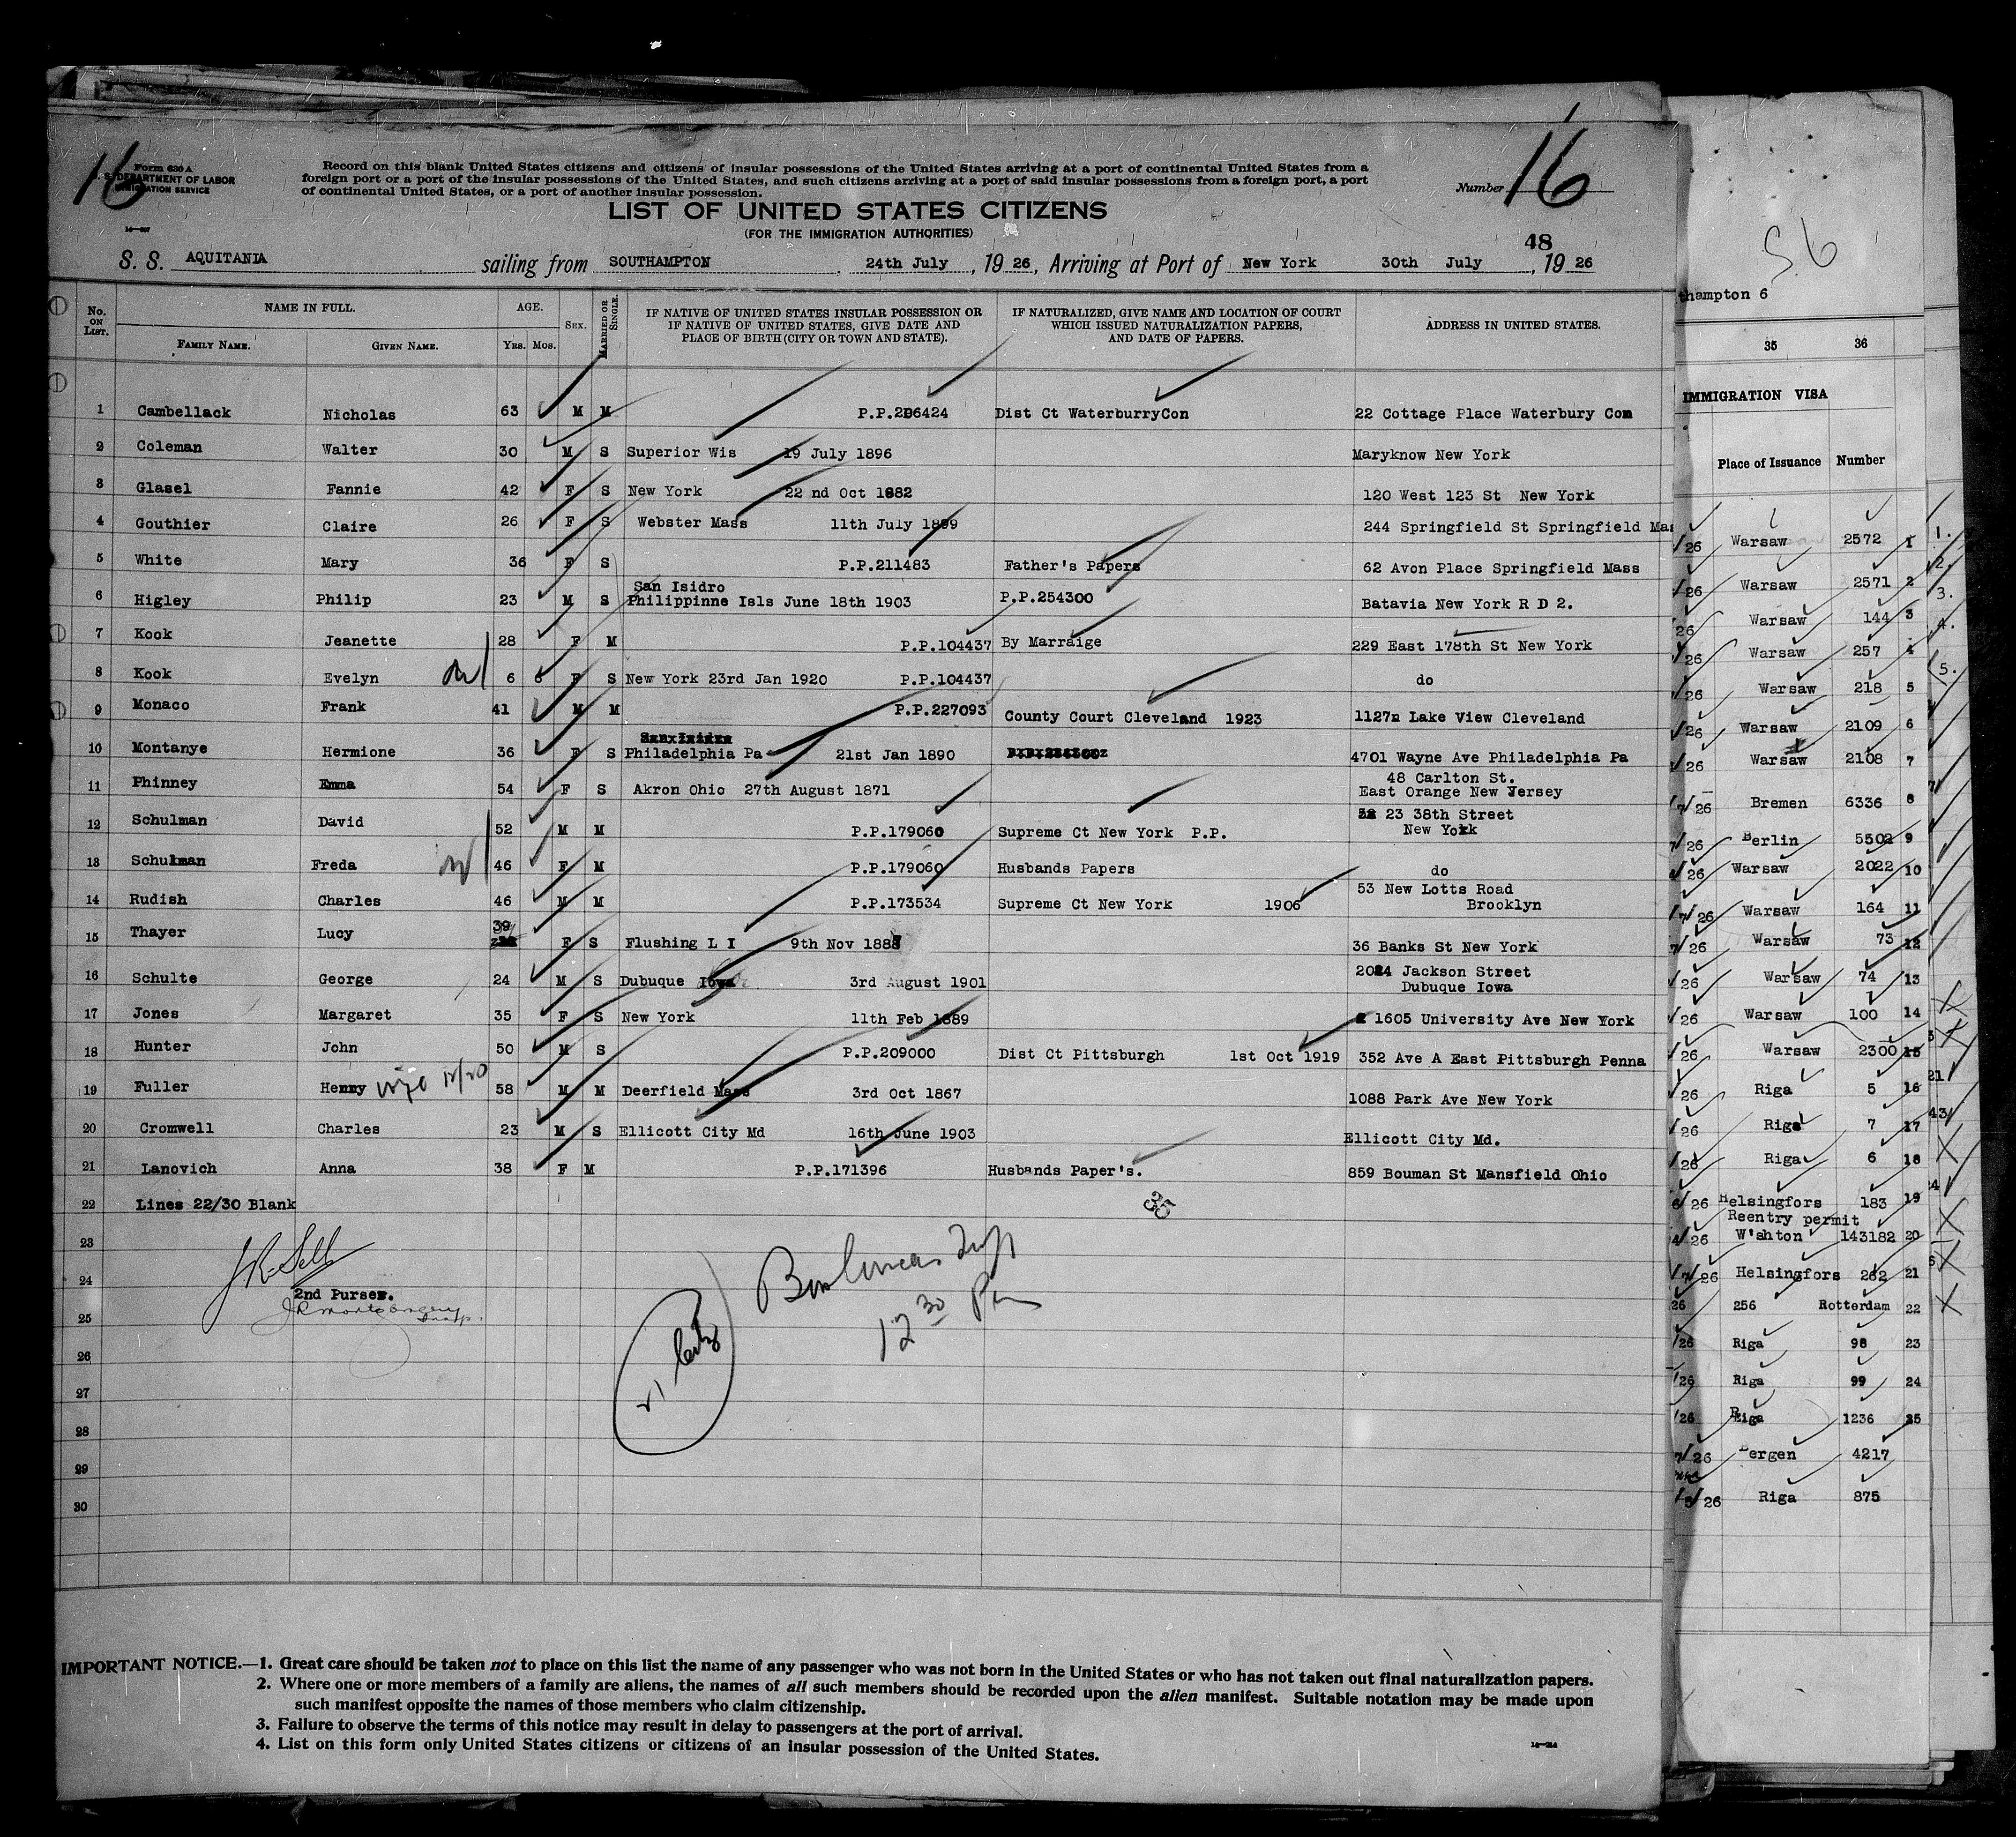 16
Form 630 A
U. S. DEPARTMENT OF LABOR
IMMIGRATION SERVICE
Record on this blank United States citizens and citizens of insular possessions of the United States arriving at a port of continental United States from a
foreign port or a port of the insular possessions of the United States, and such citizens arriving at a port of said insular possessions from a foreign port, a port
of continental United States, or a port of another insular possession.
Number 16
LIST OF UNITED STATES CITIZENS
(FOR THE IMMIGRATION AUTHORITIES)
48
S. S. AQUITANIA sailing from SOUTHAMPTON, 24th July, 19 26, Arriving at Port of New York 30th July, 19 26
No. ON LIST. NAME IN FULL. FAMILY NAME. GIVEN NAME. AGE. YRS. MOS. SEX. MARRIED OR SINGLE. IF NATIVE OF UNITED STATES INSULAR POSSESSION OR IF NATIVE OF UNITED STATES, GIVE DATE AND PLACE OF BIRTH (CITY OR TOWN AND STATE). IF NATURALIZED, GIVE NAME AND LOCATION OF COURT WHICH ISSUED NATURALIZATION PAPERS, AND DATE OF PAPERS. ADDRESS IN UNITED STATES.
1 Cambellack Nicholas 63 M M P.P.296424 Dist Ct WaterburryCon 22 Cottage Place Waterbury Con
2 Coleman Walter 30 M S Superior Wis 19 July 1896 Maryknow New York
3 Glasel Fannie 42 F S New York 22 nd Oct 1882 120 West 123 St New York
4 Gouthier Claire 26 F S Webster Mass 11th July 1899 244 Springfield St Springfield Mas
5 White Mary 36 F S P.P.211483 Father's Papers 62 Avon Place Springfield Mass
6 Higley Philip 23 M S San Isidro Philippinne Isls June 18th 1903 P.P.254300 Batavia New York R D 2.
7 Kook Jeanette 28 F M P.P.104437 By Marraige 229 East 178th St New York
8 Kook Evelyn 6 6 F S New York 23rd Jan 1920 P.P.104437 do
9 Monaco Frank 41 M M P.P.227093 County Court Cleveland 1923 1127n Lake View Cleveland
10 Montanye Hermione 36 F S Philadelphia Pa 21st Jan 1890 4701 Wayne Ave Philadelphia Pa
11 Phinney Emma 54 F S Akron Ohio 27th August 1871 48 Carlton St. East Orange New Jersey
12 Schulman David 52 M M P.P.179060 Supreme Ct New York P.P. 23 38th Street New York
13 Schulman Freda 46 F M P.P.179060 Husbands Papers do
14 Rudish Charles 46 M M P.P.173534 Supreme Ct New York 1906 53 New Lotts Road Brooklyn
15 Thayer Lucy 39 F S Flushing L I 9th Nov 188 36 Banks St New York
16 Schulte George 24 M S Dubuque Iowa 3rd August 1901 2024 Jackson Street Dubuque Iowa
17 Jones Margaret 35 F S New York 11th Feb 1889 1605 University Ave New York
18 Hunter John 50 M S P.P.209000 Dist Ct Pittsburgh 1st Oct 1919 352 Ave A East Pittsburgh Penna
19 Fuller Henny 58 M M Deerfield Mass 3rd Oct 1867 1088 Park Ave New York
20 Cromwell Charles 23 M S Ellicott City Md 16th June 1903 Ellicott City Md.
21 Lanovich Anna 38 F M P.P.171396 Husbands Paper's. 859 Bouman St Mansfield Ohio
22 Lines 22/30 Blank
35
23
24
2nd Purser.
25
12 30 Pm
26
27
28
29
30
IMPORTANT NOTICE.—1. Great care should be taken not to place on this list the name of any passenger who was not born in the United States or who has not taken out final naturalization papers.
2. Where one or more members of a family are aliens, the names of all such members should be recorded upon the alien manifest. Suitable notation may be made upon
such manifest opposite the names of those members who claim citizenship.
3. Failure to observe the terms of this notice may result in delay to passengers at the port of arrival.
4. List on this form only United States citizens or citizens of an insular possession of the United States.
thampton 6
35 36
IMMIGRATION VISA
Place of Issuance Number
26 Warsaw 2572 1
26 Warsaw 2571 2
26 Warsaw 144 3
26 Warsaw 257 4
26 Warsaw 218 5
26 Warsaw 2109 6
26 Warsaw 2108 7
7/26 Bremen 6336 8
7/26 Berlin 5502 9
26 Warsaw 2022 10
7/26 Warsaw 164 11
7/26 Warsaw 73 12
26 Warsaw 74 13
26 Warsaw 100 14
26 Warsaw 2300 15
26 Riga 5 16
26 Riga 7 17
26 Riga 6 18
6/26 Helsingfors 183 19
Reentry permit
4/26 W'shton 143182 20
7/26 Helsingfors 262 21
26 256 Rotterdam 22
26 Riga 98 23
26 Riga 99 24
26 Riga 1236 25
7/26 Bergen 4217
26 Riga 875